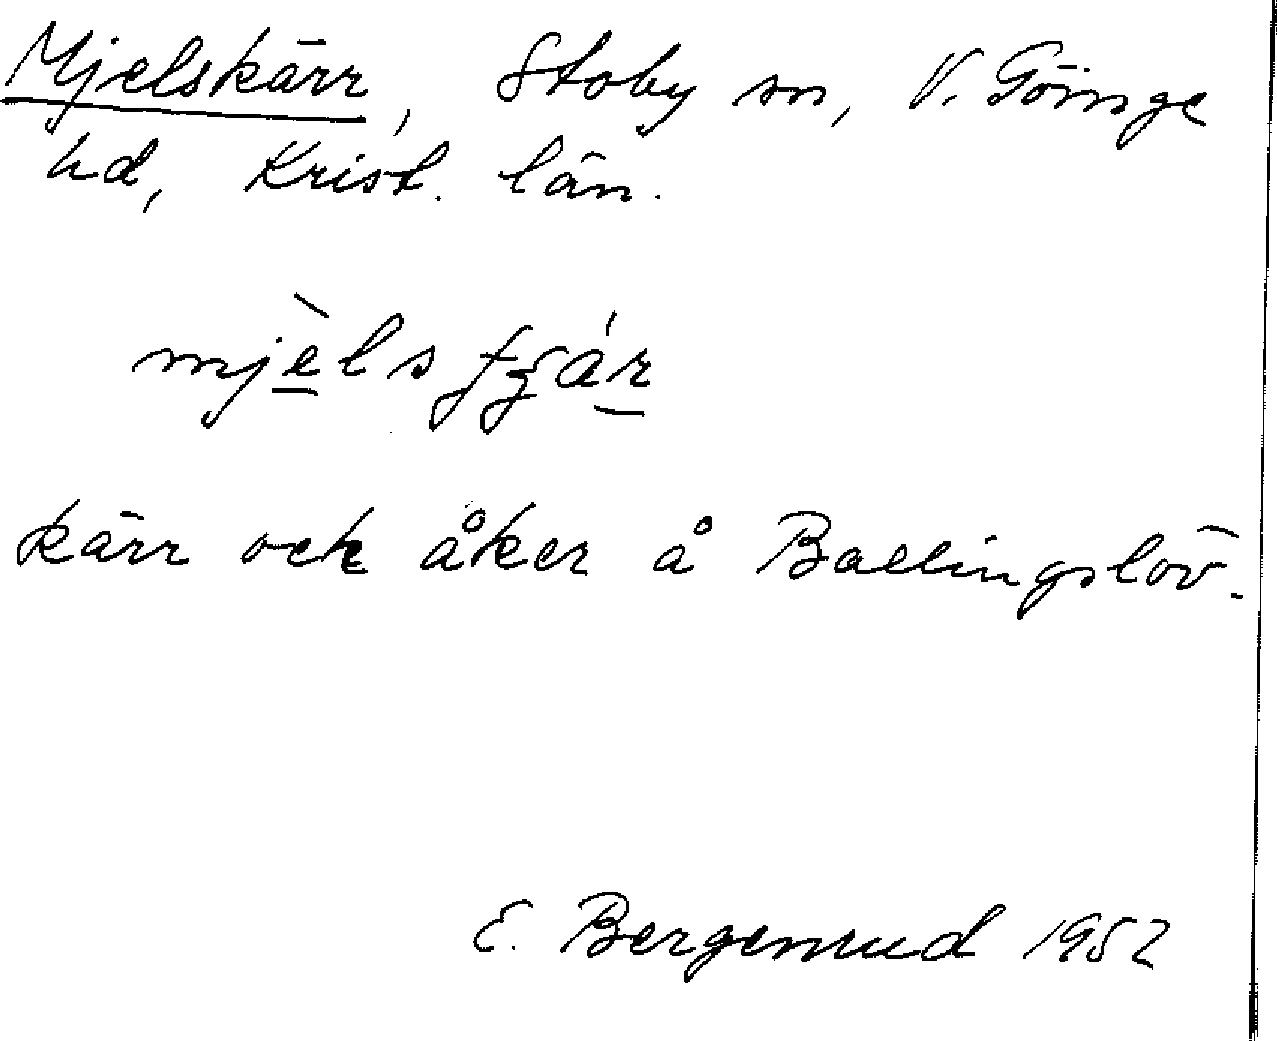 Mjelskärr, Stoby sn, V. Göinge
hd, Krist. län.
mjèlsʄʒár
kärr och åker å Ballingslöv.
E. Bergenrud 1952